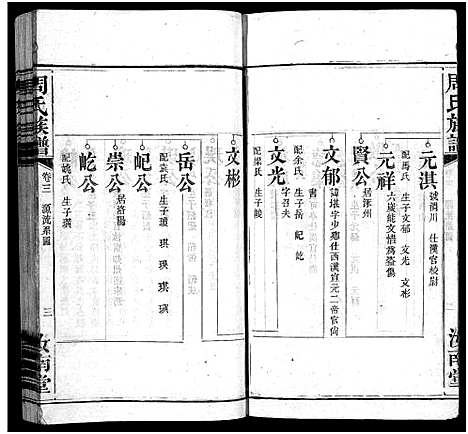 周氏族譜
元淇
號澗川 仕漢官校尉
配馬氏 生子文郁 文光 文彬
元祥
六歲能文惜為崙傷
賢公
居涿州
文郁
諱堪字少 仕西漢宣元二帝官尚
書
配余氏 生子岳 屺 屹
字召夫
配 氏 生子崚
文彬
岳公
配袁氏 生子 琪 瑛 琪
屺公
崇公
居洛陽
屹公
配姚氏 生子瑱
周氏族譜
卷三 源流系圖
三
汝南堂
汝南堂